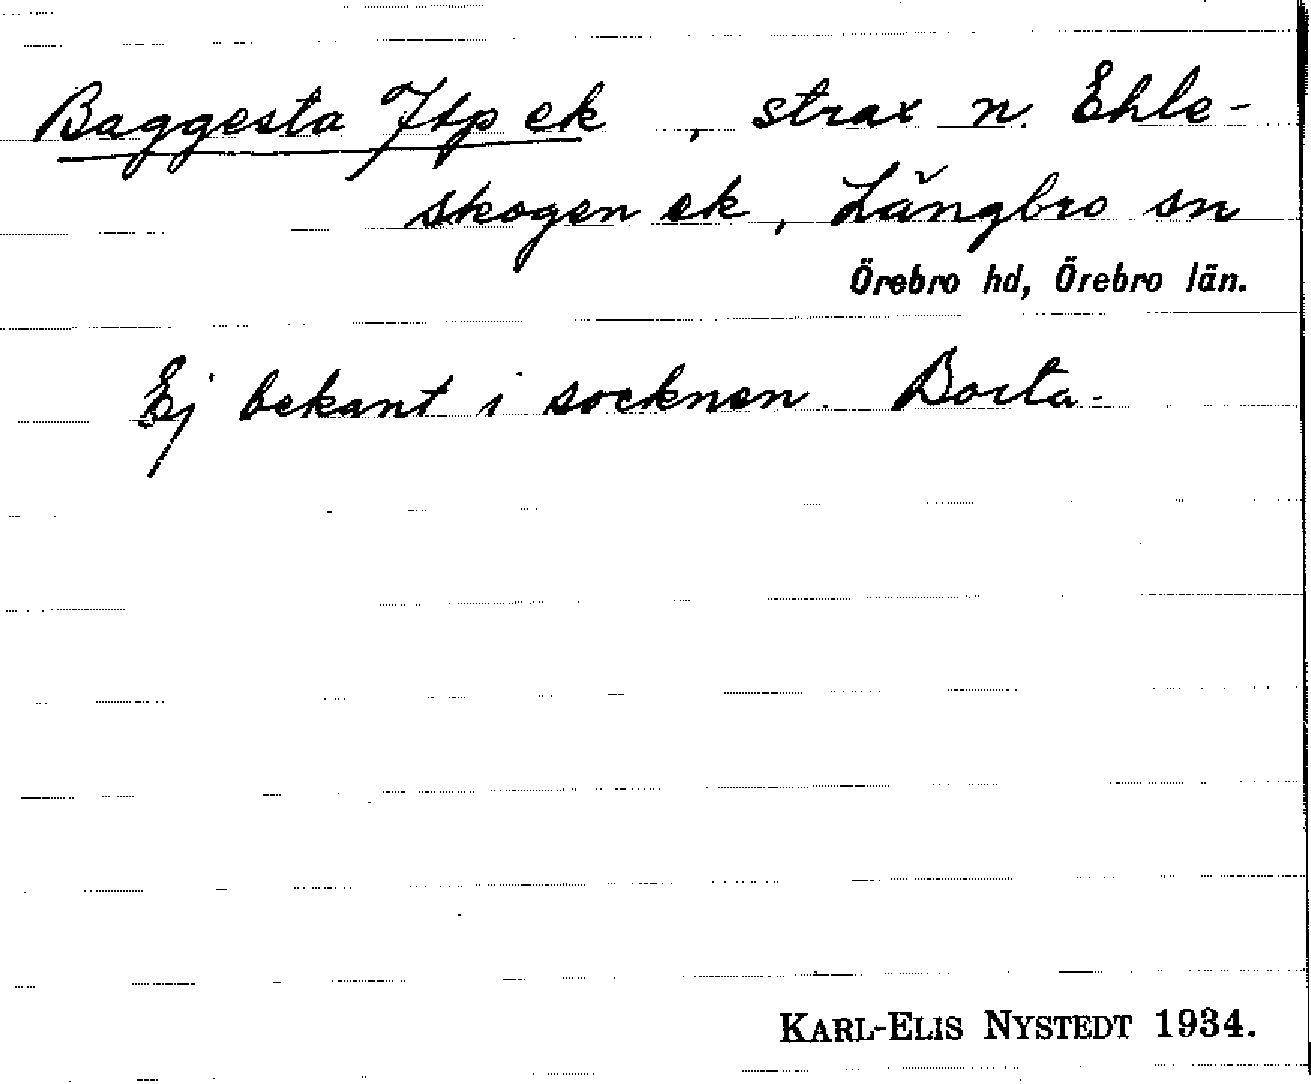 Baggesta Ftp ek, strax n. Ehle-
skogen ek, Längbro sn
Örebro hd, Örebro län.
Ej bekant i socknen. Borta.
KARL-ELIS NYSTEDT 1934.